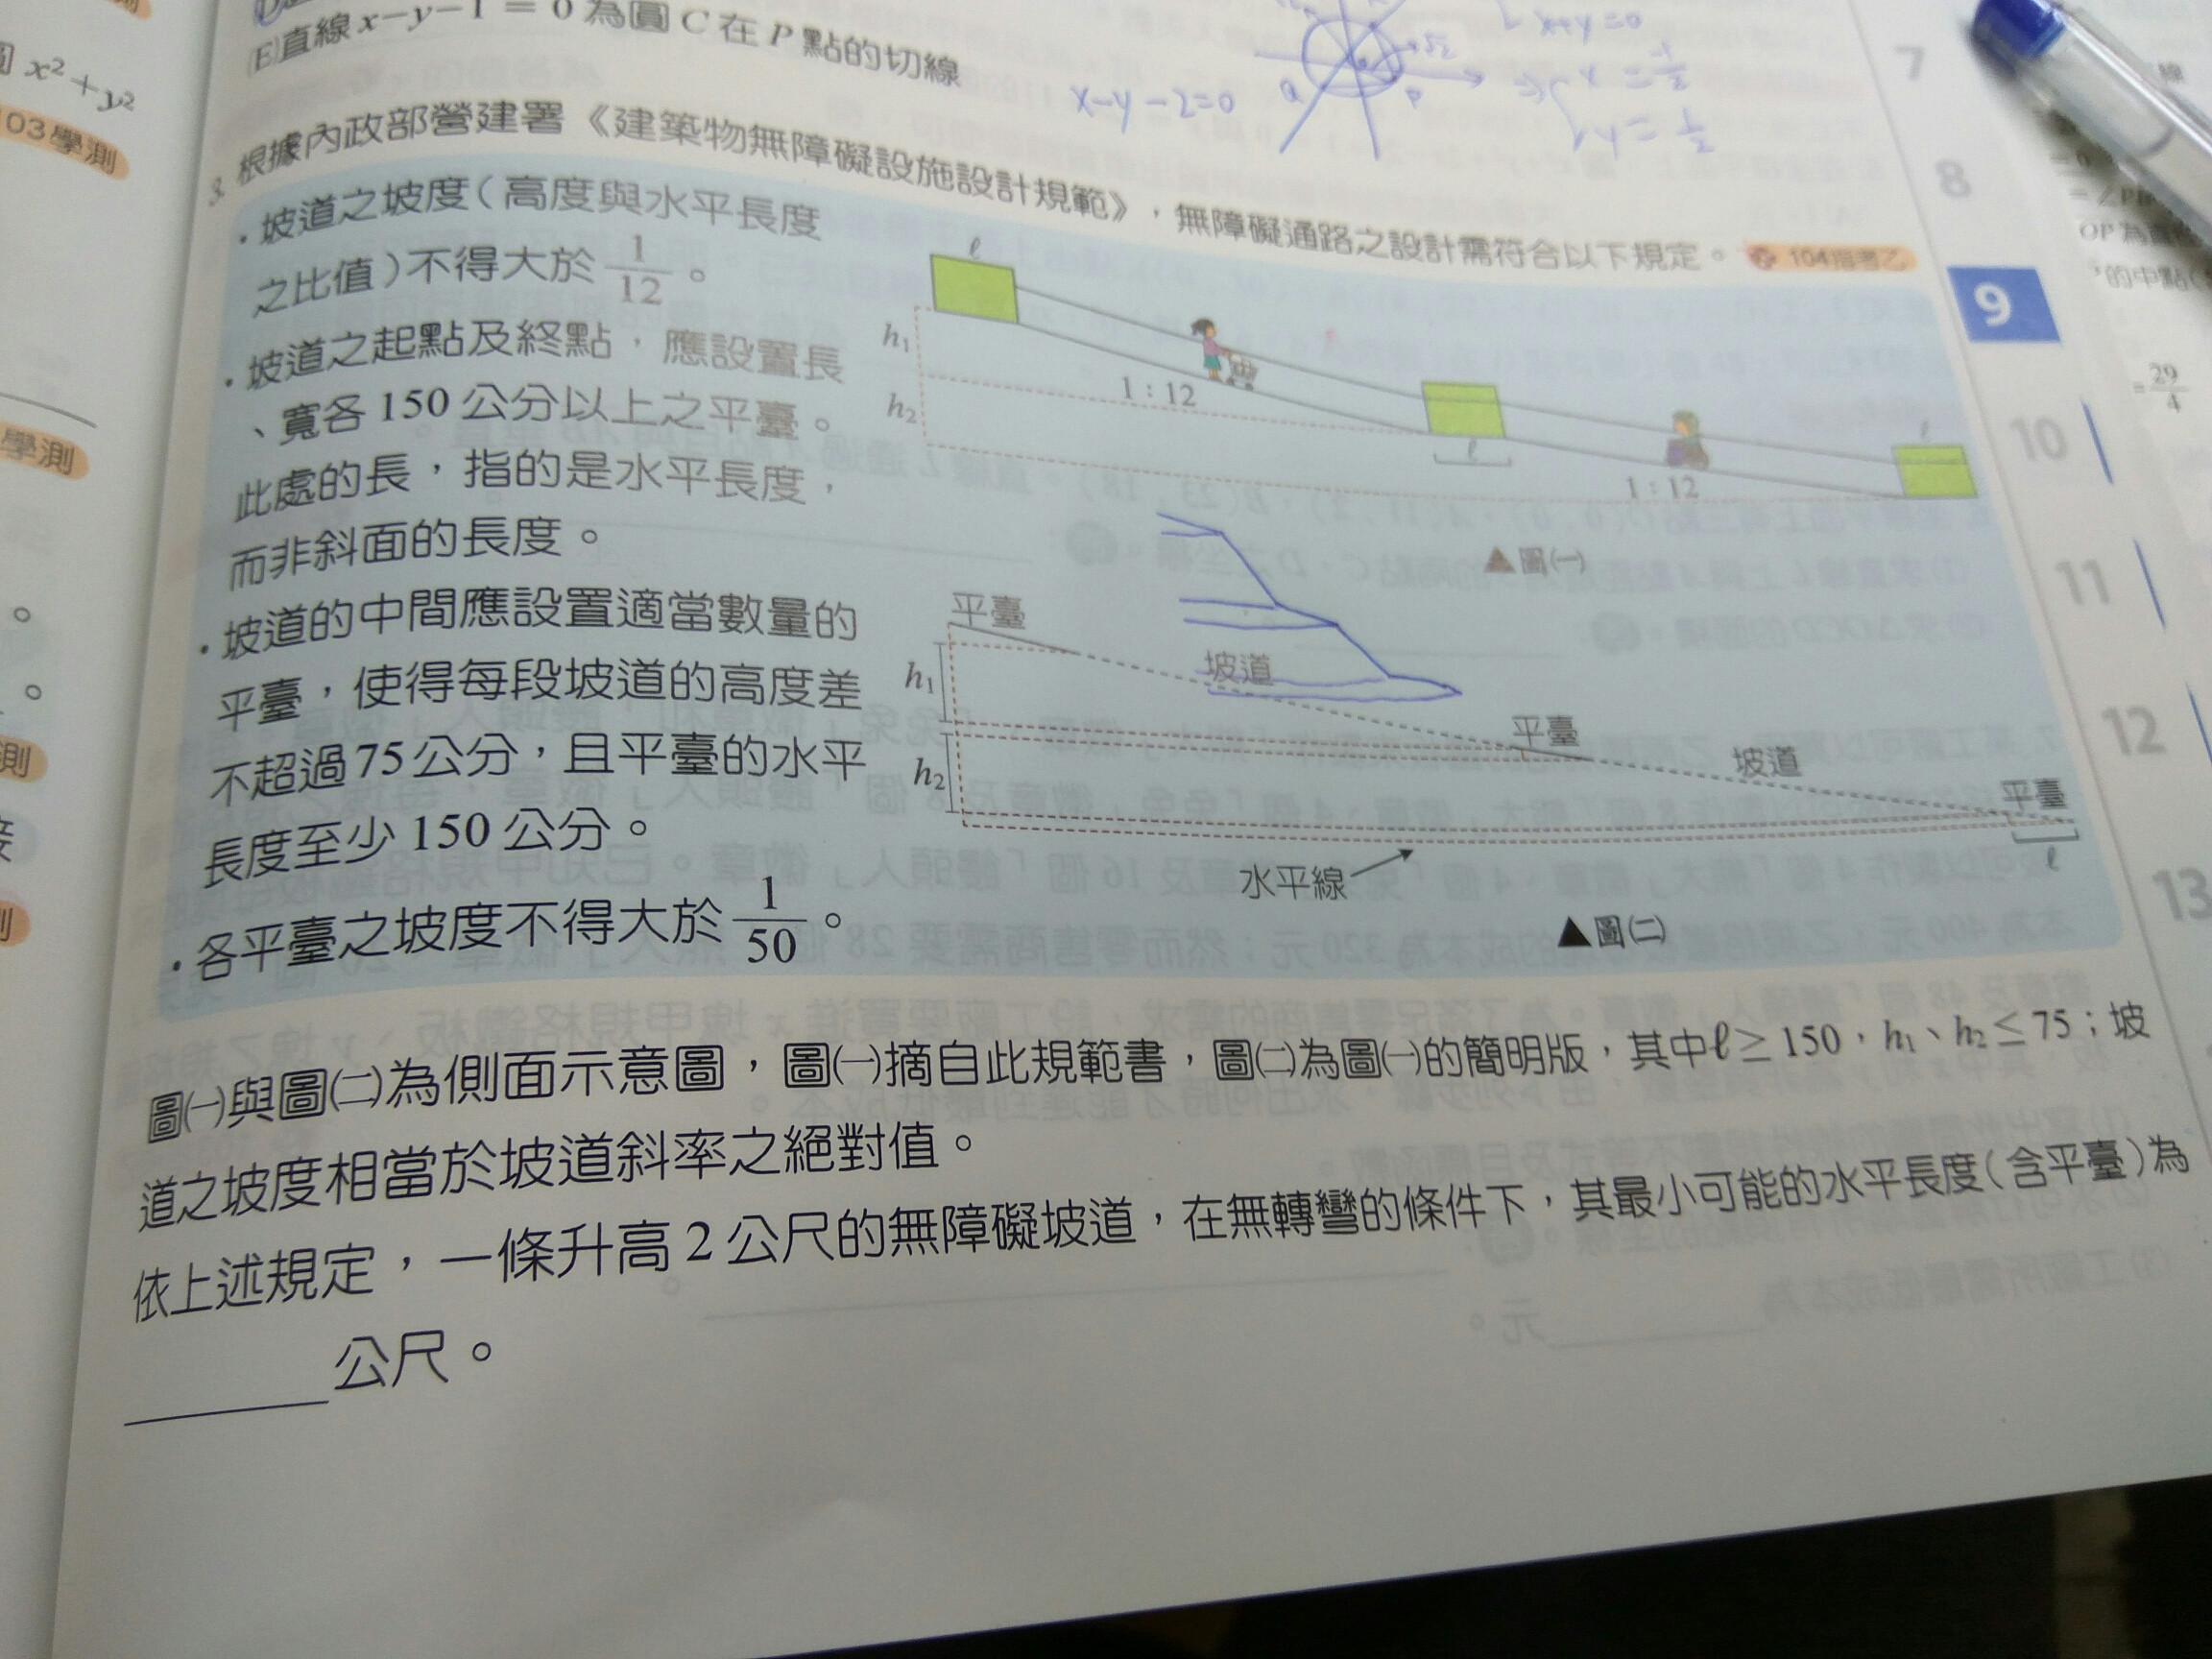 圓 x²+y²
103學測
學測
(E)直線 x−y−1 = 0 為圓 C 在 P 點的切線
x−y−2=0
x+y=0
7
8
9
10
11
12
13
根據內政部營建署《建築物無障礙設施設計規範》，無障礙通路之設計需符合以下規定。 104指考乙
・坡道之坡度(高度與水平長度
之比值)不得大於 1/12 。
・坡道之起點及終點，應設置長
、寬各 150 公分以上之平臺。
此處的長，指的是水平長度，
而非斜面的長度。
・坡道的中間應設置適當數量的
平臺，使得每段坡道的高度差
不超過 75 公分，且平臺的水平
長度至少 150 公分。
・各平臺之坡度不得大於 1/50 。
ℓ
h₁
h₂
1：12
ℓ
1：12
ℓ
▲圖㈠
平臺
h₁
坡道
平臺
h₂
坡道
平臺
水平線
ℓ
▲圖㈡
圖㈠與圖㈡為側面示意圖，圖㈠摘自此規範書，圖㈡為圖㈠的簡明版，其中 ℓ ≥ 150，h₁、h₂ ≤ 75；坡
道之坡度相當於坡道斜率之絕對值。
依上述規定，一條升高 2 公尺的無障礙坡道，在無轉彎的條件下，其最小可能的水平長度(含平臺)為
公尺。
= 29/4